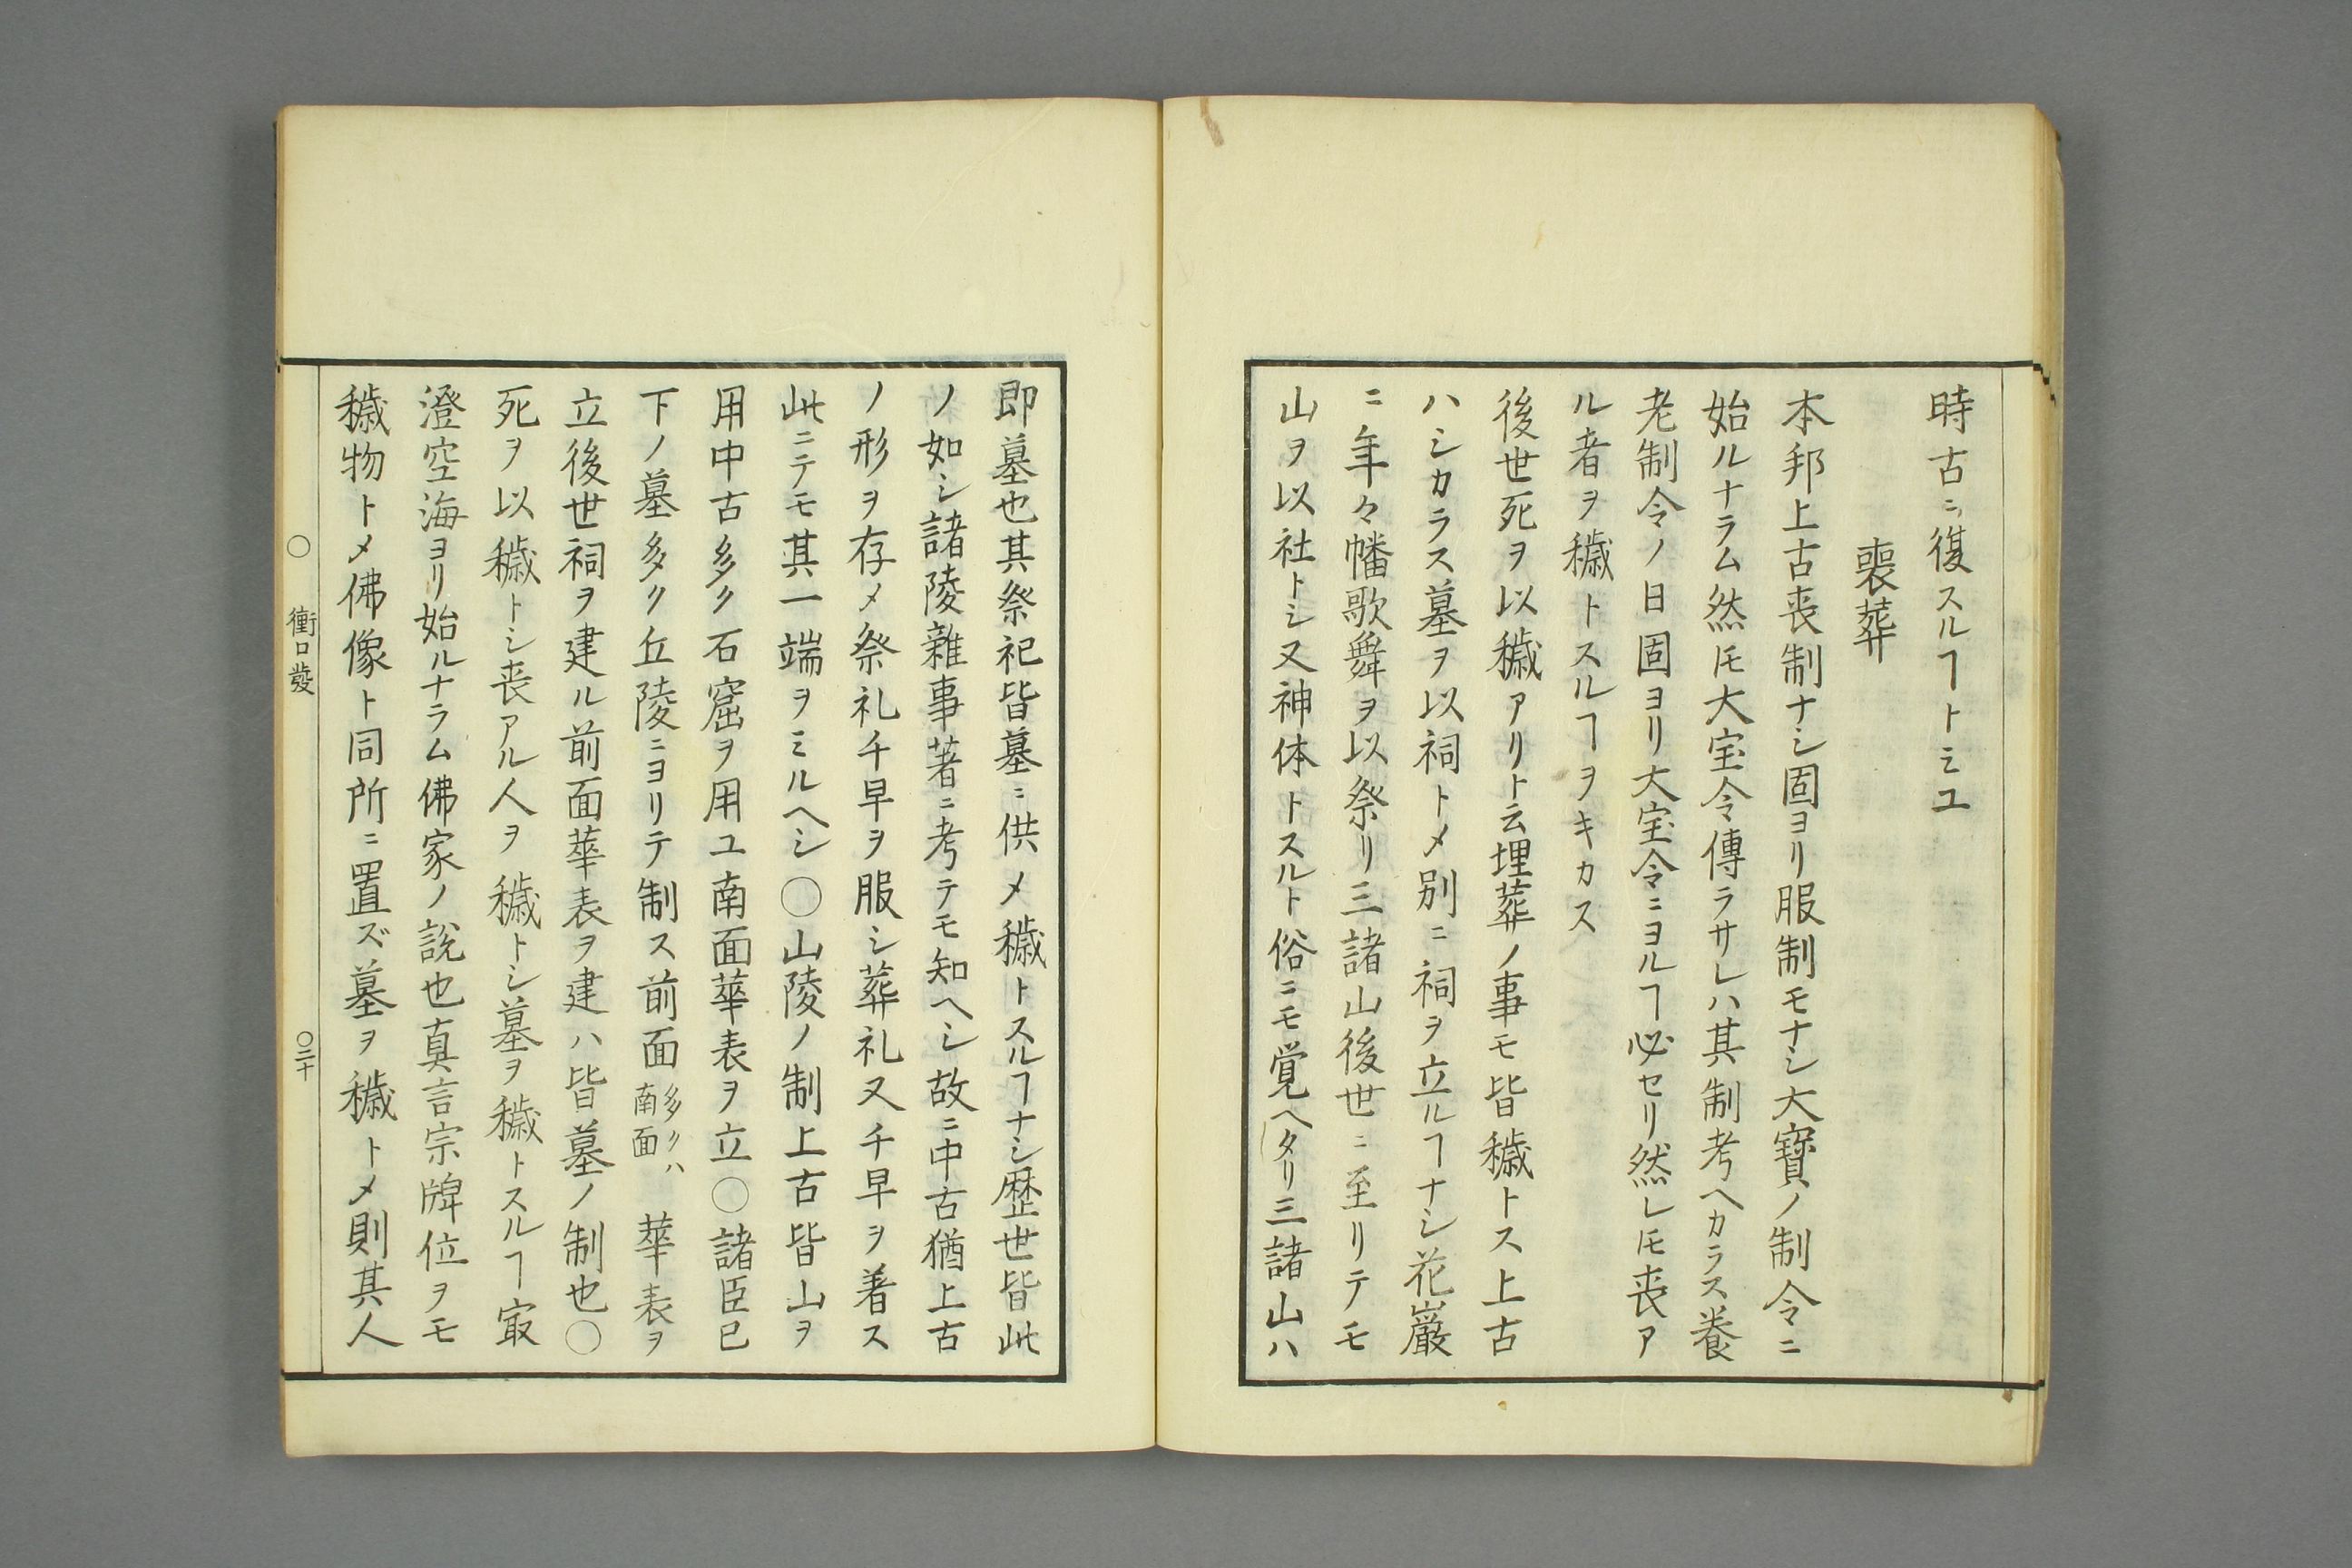 時古ニ復スルヿトミユ
喪葬
本邦上古喪制ナシ固ヨリ服制モナシ大寶ノ制令ニ
始ルナラム然𪜈大宝令傳ラサレハ其制考ヘカラス養
老制令ノ日固ヨリ大宝令ニヨルヿ必セリ然レ𪜈喪ア
ル者ヲ穢トスルヿヲキカス
後世死ヲ以穢アリト云埋葬ノ事モ皆穢トス上古
ハシカラス墓ヲ以祠トメ別ニ祠ヲ立ルヿナシ花巌
ニ年々幡歌舞ヲ以祭リ三諸山後世ニ至リテモ
山ヲ以社トシ又神体トスルト俗ニモ覚ヘタリ三諸山ハ
即墓也其祭祀皆墓ニ供メ穢トスルヿナシ歴世皆此
ノ如シ諸陵雜事著ニ考テモ知ヘシ故ニ中古猶上古
ノ形ヲ存メ祭礼千早ヲ服シ葬礼又千早ヲ着ス
此ニテモ其一端ヲミルヘシ〇山陵ノ制上古皆山ヲ
用中古多ク石窟ヲ用ユ南面華表ヲ立〇諸臣已
下ノ墓多ク丘陵ニヨリテ制ス前面多クハ南面華表ヲ
立後世祠ヲ建ル前面華表ヲ建ハ皆墓ノ制也〇
死ヲ以穢トシ喪アル人ヲ穢トシ墓ヲ穢トスルヿ㝡
澄空海ヨリ始ルナラム佛家ノ說也真言宗牌位ヲモ
穢物トメ佛像ト同所ニ置ズ墓ヲ穢トメ則其人
〇 衝口發 〇二十